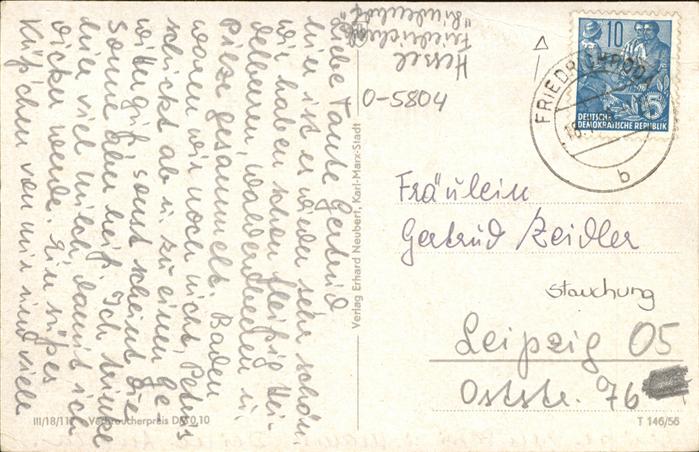 Hessel
Friedrichroda
"Lindenhof"
Liebe Tante Gertrud
hier ist es wieder sehr schön
wir haben schon fleißig Hei-
delbeeren, Walderdbeeren u.
Pilze gesammelt. Baden
waren wir noch nicht, Petrus
schickt ab u. zu einen Ge-
witterguß, sonst scheint die
Sonne aber heiß. Ich trinke
nun viel Milch, damit ich
dicker werde. Ein süßes
Küßchen von mir und viele
O-5804
Verlag Erhard Neubert, Karl-Marx-Stadt
10
5
DEUTSCHE
DEMOKRATISCHE REPUBLIK
FRIEDRICHRODA
b
Fräulein
Gertrud Zeidler
Stauchung
Leipzig O5
Oststr. 76
III/18/117 Verbraucherpreis DM 0,10
T 146/56